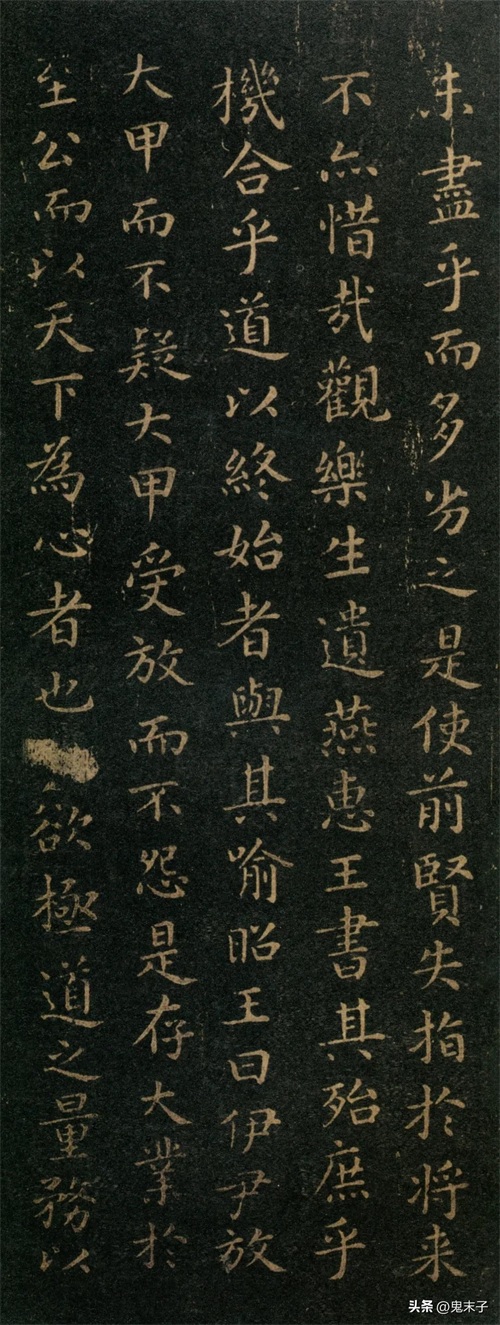 未盡乎而多劣之是使前賢失指於将来
不亦惜哉觀樂生遺燕惠王書其殆庶乎
機合乎道以終始者與其喻昭王曰伊尹放
大甲而不疑大甲受放而不怨是存大業於
至公而以天下為心者也欲極道之量務以
头条 @鬼末子